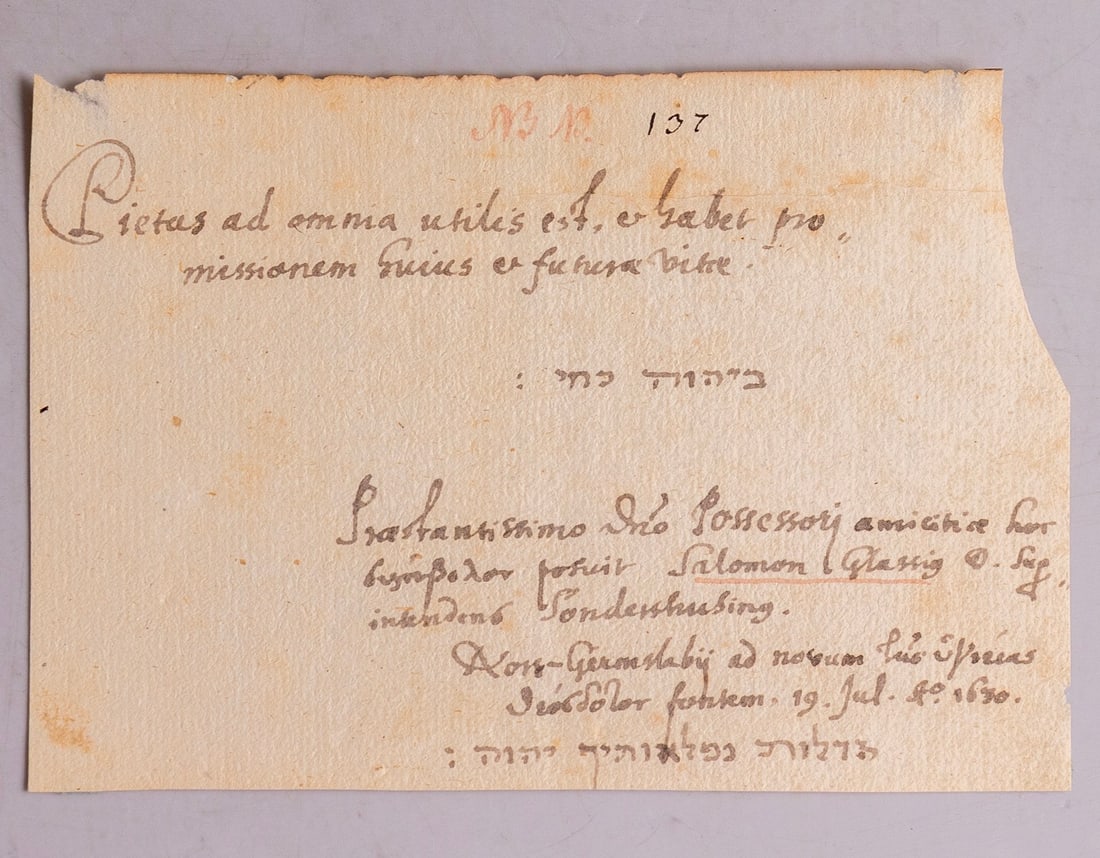 NB N. 137
Pietas ad omnia utilis est, et habet pro„
missionem huius et futuræ vitæ.
ביהוה כחי :
Præstantissimo Dno Possessori amicitiæ hoc
σύμβολον posuit Salomon Glassig D. Sup
intendens Sondershusing.
ad novum τῆς ὑγιείας
fontem. 19. Jul. Ao. 1630.
גדלות נפלאותיך יהוה :